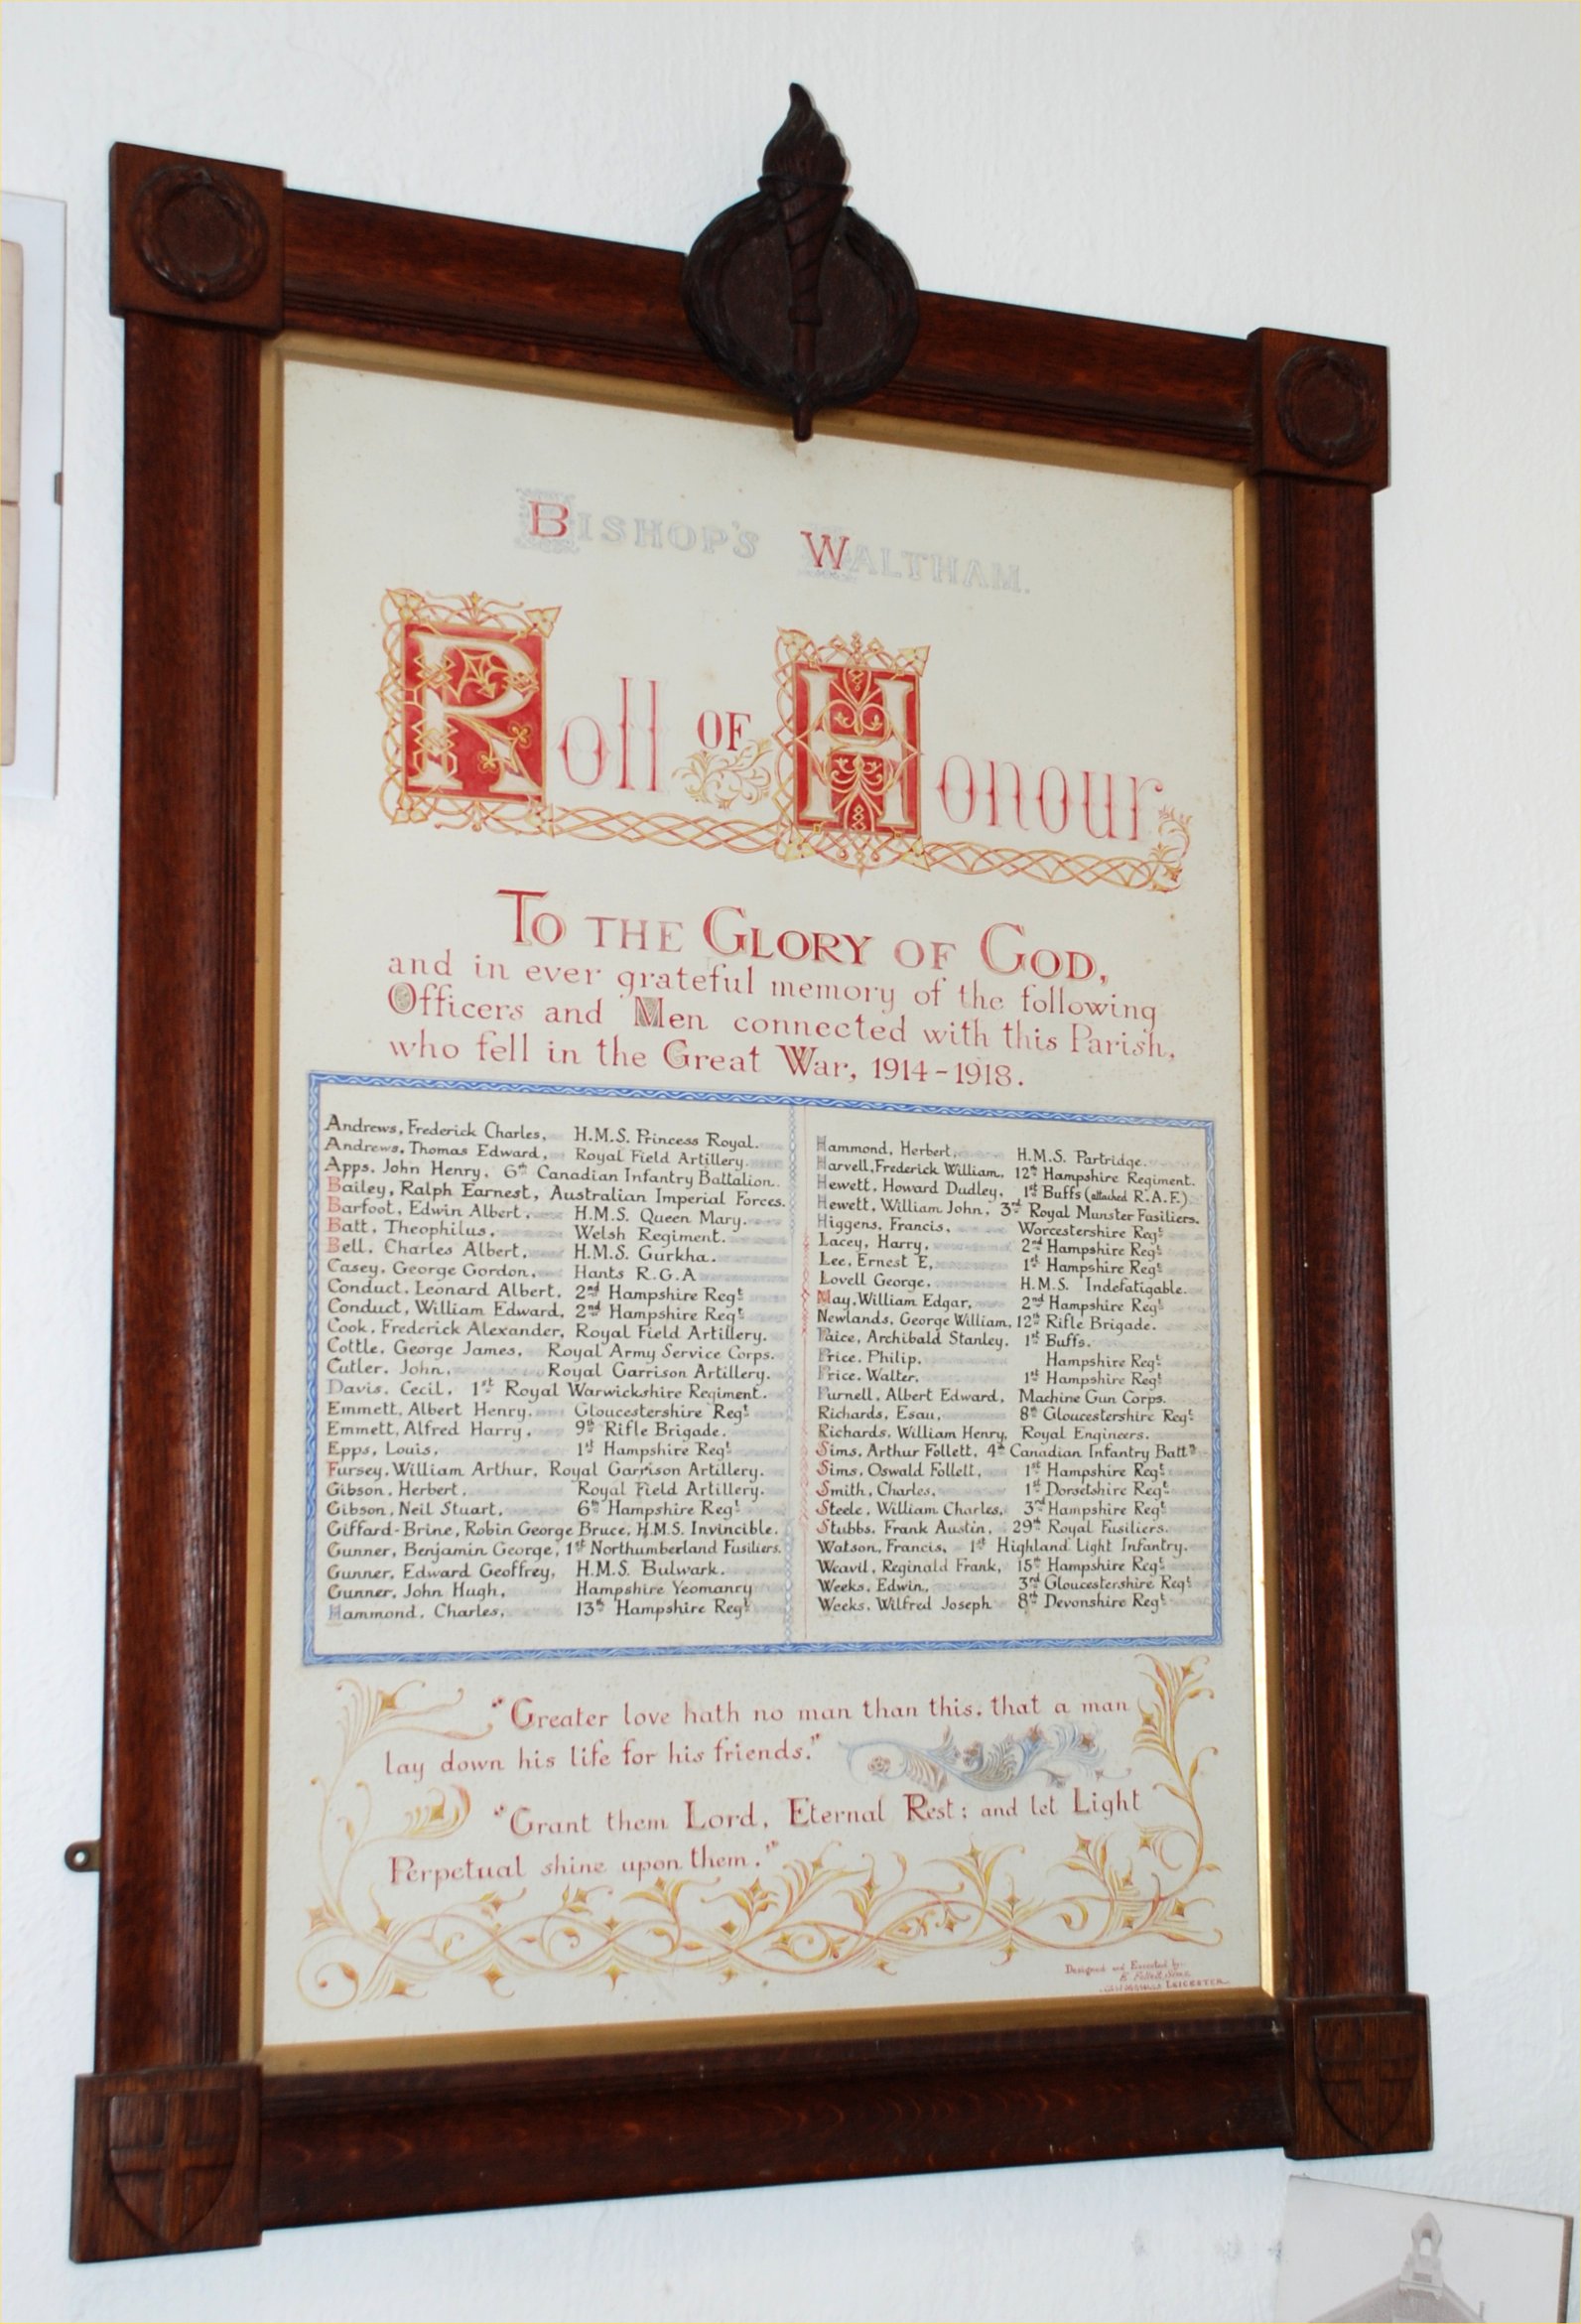 BISHOP'S WALTHAM.
Roll OF Honour
TO THE GLORY OF GOD,
and in ever grateful memory of the following
Officers and Men connected with this Parish,
who fell in the Great War, 1914-1918.
Andrews, Frederick Charles, H.M.S. Princess Royal.
Andrews, Thomas Edward, Royal Field Artillery.
Apps, John Henry, 6th Canadian Infantry Battalion.
Bailey, Ralph Earnest, Australian Imperial Forces.
Barfoot, Edwin Albert, H.M.S. Queen Mary.
Batt, Theophilus, Welsh Regiment.
Bell, Charles Albert, H.M.S. Gurkha.
Casey, George Gordon, Hants R.G.A
Conduct, Leonard Albert, 2nd Hampshire Regt
Conduct, William Edward, 2nd Hampshire Regt
Cook, Frederick Alexander, Royal Field Artillery.
Cottle, George James, Royal Army Service Corps.
Cutler, John, Royal Garrison Artillery.
Davis, Cecil, 1st Royal Warwickshire Regiment.
Emmett, Albert Henry, Gloucestershire Regt
Emmett, Alfred Harry, 9th Rifle Brigade.
Epps, Louis, 1st Hampshire Regt
Fursey, William Arthur, Royal Garrison Artillery.
Gibson, Herbert, Royal Field Artillery.
Gibson, Neil Stuart, 6th Hampshire Regt
Giffard-Brine, Robin George Bruce, H.M.S. Invincible.
Gunner, Benjamin George, 1st Northumberland Fusiliers.
Gunner, Edward Geoffrey, H.M.S. Bulwark.
Gunner, John Hugh, Hampshire Yeomanry
Hammond, Charles, 13th Hampshire Regt
Hammond, Herbert, H.M.S. Partridge.
Harvell, Frederick William, 12th Hampshire Regiment.
Hewett, Howard Dudley, 1st Buffs (attached R.A.F.)
Hewett, William John, 3rd Royal Munster Fusiliers.
Higgens, Francis, Worcestershire Regt
Lacey, Harry, 2nd Hampshire Regt
Lee, Ernest E, 1st Hampshire Regt
Lovell George, H.M.S. Indefatigable.
May, William Edgar, 2nd Hampshire Regt
Newlands, George William, 12th Rifle Brigade.
Paice, Archibald Stanley, 1st Buffs.
Price, Philip, Hampshire Regt
Price, Walter, 1st Hampshire Regt
Purnell, Albert Edward, Machine Gun Corps.
Richards, Esau, 8th Gloucestershire Regt
Richards, William Henry, Royal Engineers.
Sims, Arthur Follett, 4th Canadian Infantry Battn
Sims, Oswald Follett, 1st Hampshire Regt
Smith, Charles, 1st Dorsetshire Regt
Steele, William Charles, 3rd Hampshire Regt
Stubbs, Frank Austin, 29th Royal Fusiliers.
Watson, Francis, 1st Highland Light Infantry.
Weavil, Reginald Frank, 15th Hampshire Regt
Weeks, Edwin, 3rd Gloucestershire Regt
Weeks, Wilfred Joseph 8th Devonshire Regt
"Greater love hath no man than this, that a man
lay down his life for his friends."
"Grant them Lord, Eternal Rest; and let Light
Perpetual shine upon them."
Designed and Executed by
LEICESTER